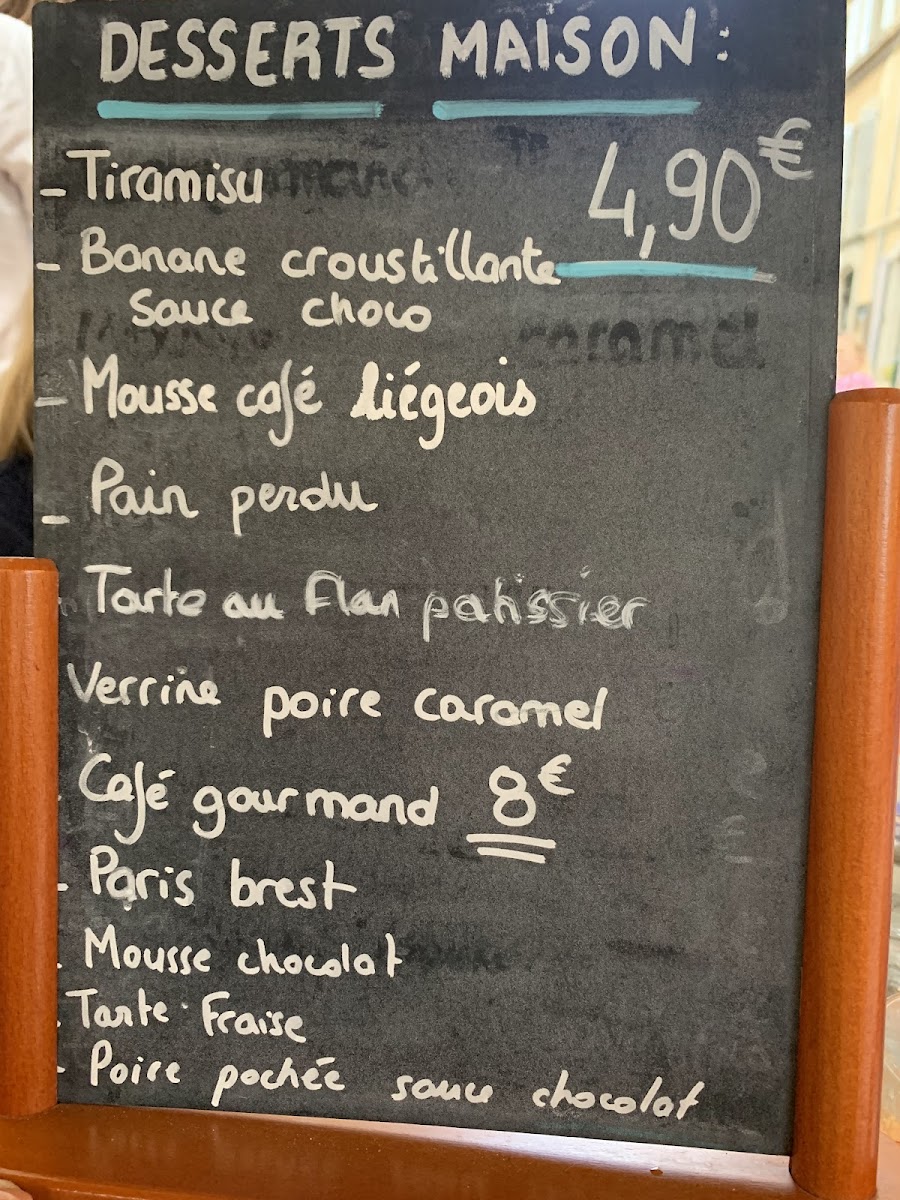 DESSERTS MAISON :
- Tiramisu 4,90€
- Banane croustillante
sauce choco
- Mousse café liégeois
- Pain perdu
- Tarte au flan patissier
Verrine poire caramel
Café gourmand 8€
- Paris brest
- Mousse chocolat
- Tarte Fraise
- Poire pochée sauce chocolat